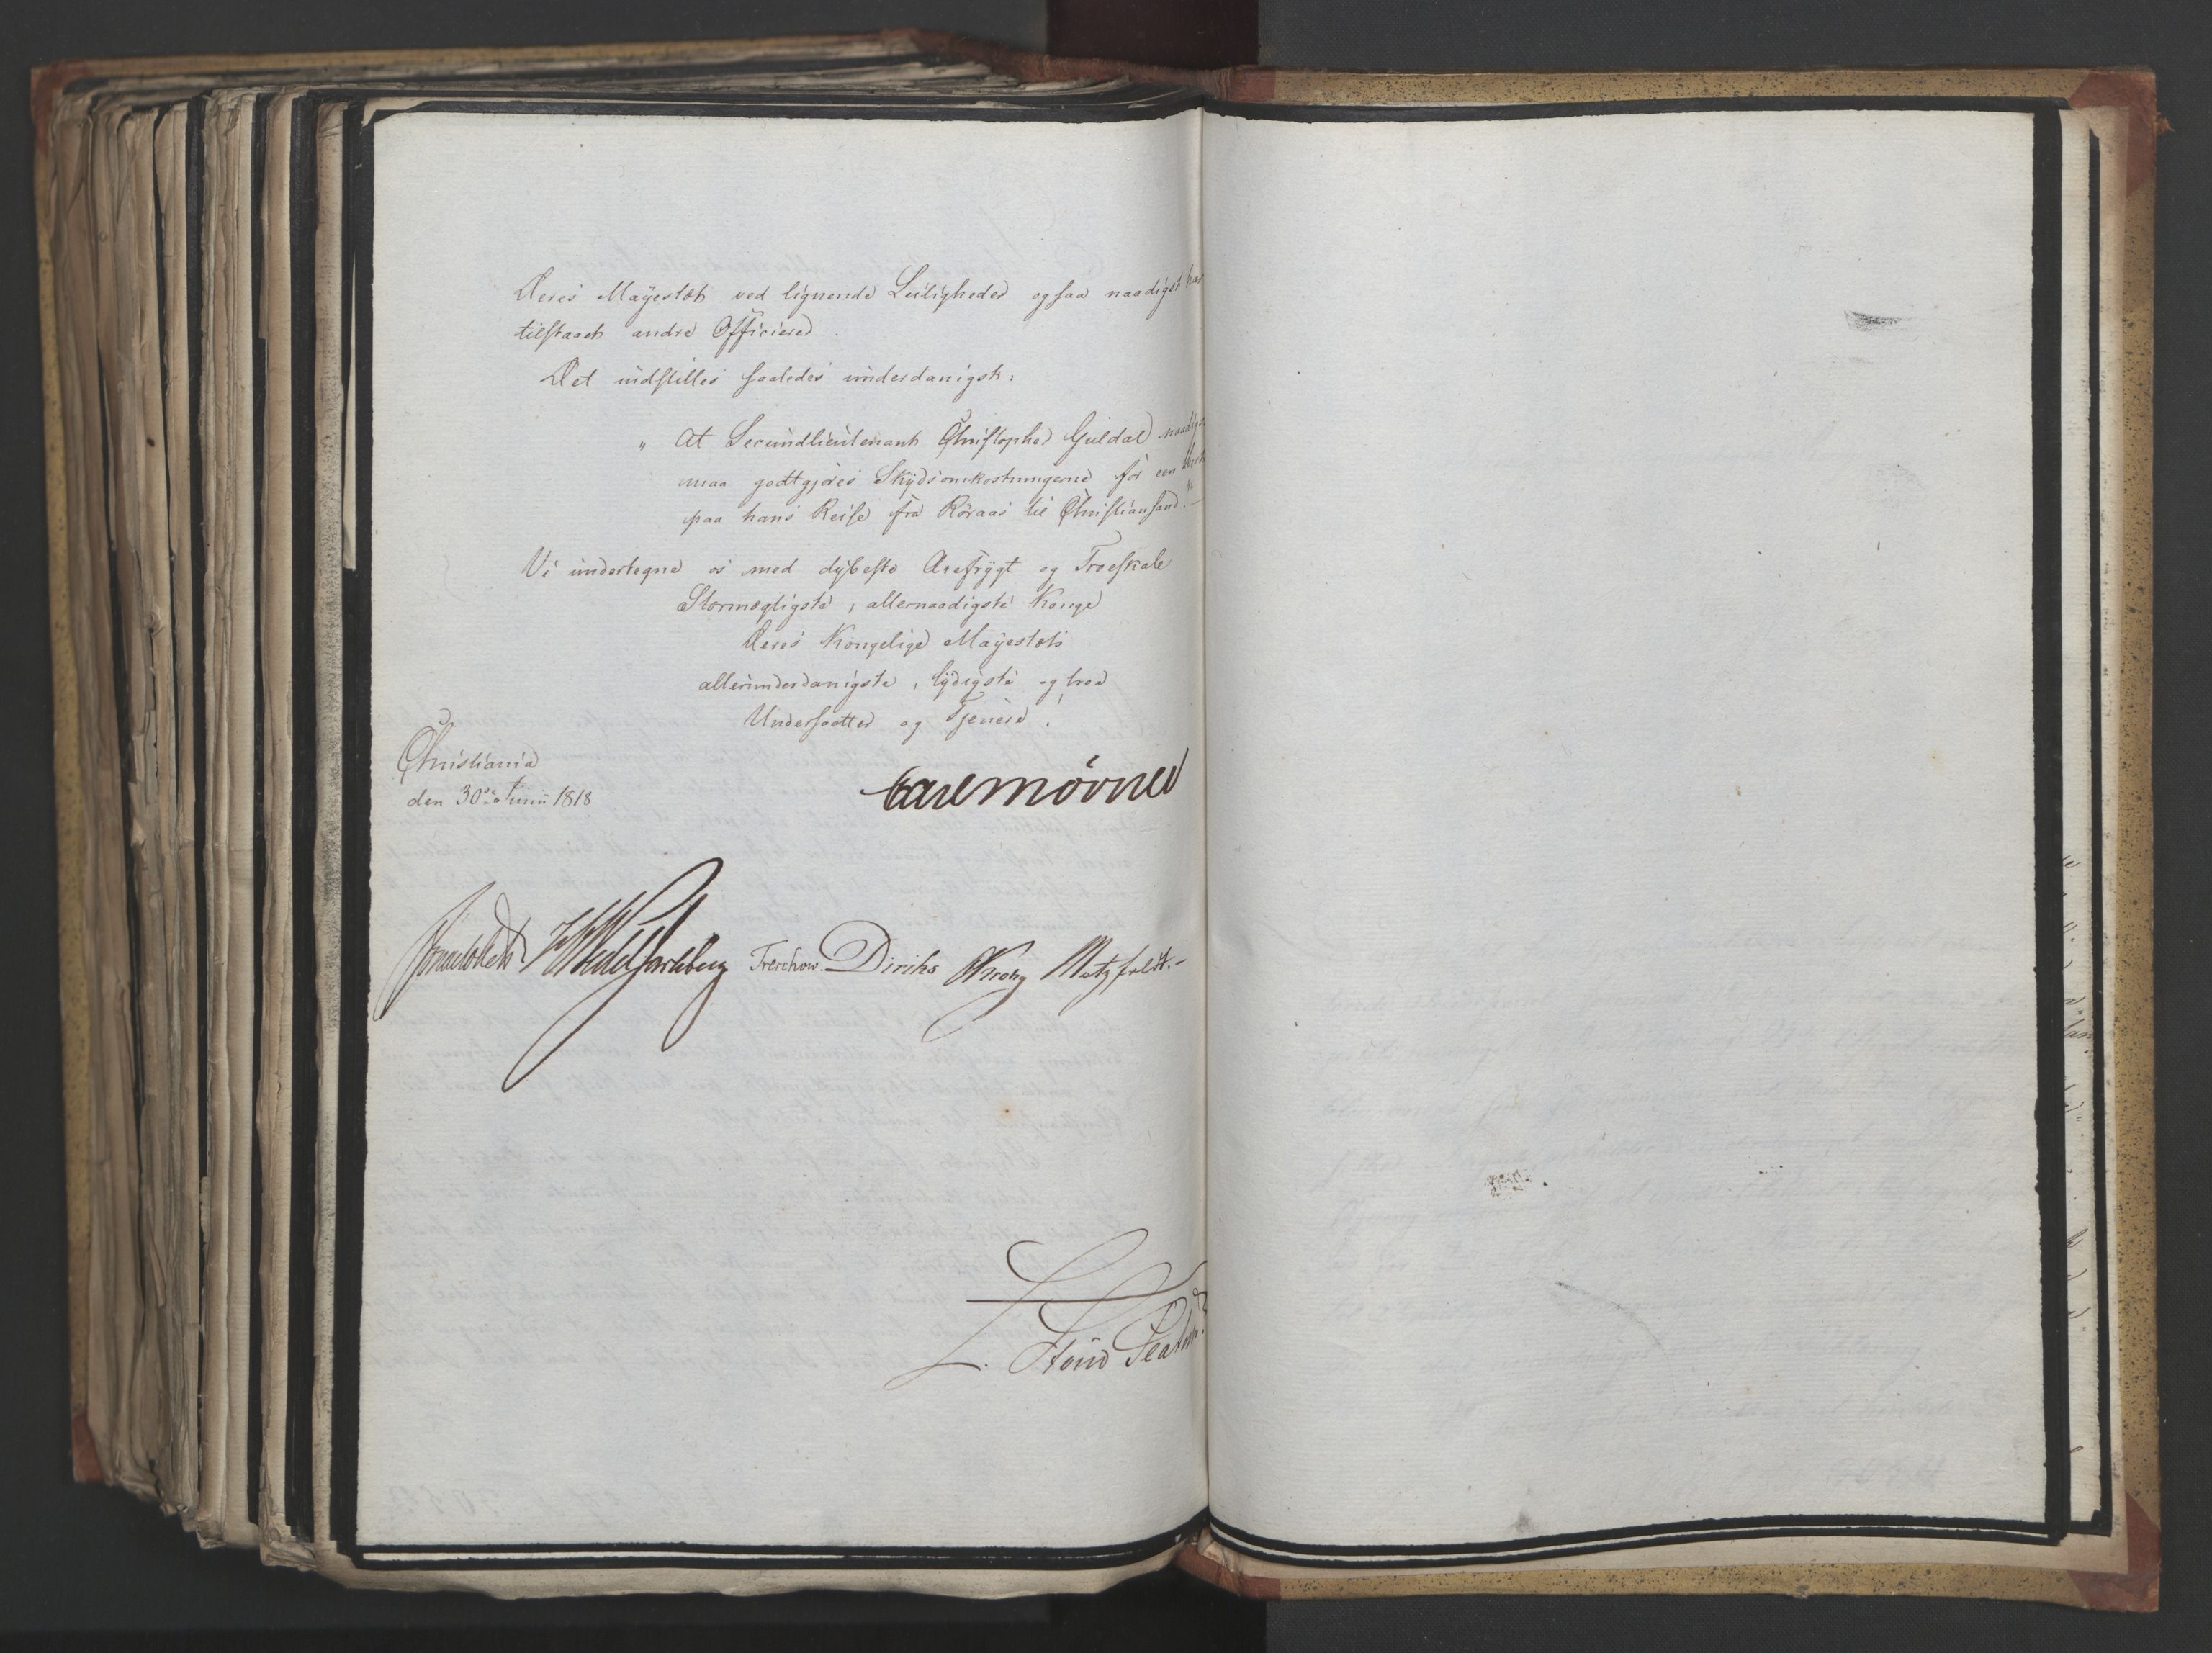 Deres Mayestæt ved lignende Leiligheder ogsaa naadigst har
tilstaaet andre Officierer.
Det indstilles saaledes underdanigst:
" At Secundlieutenant Christopher Guldal naadigst
maa godtgjøres Skydsomkostningerne for een Hest
paa hans Reise fra Röraas til Christiansand."
Vi undertegne os med dybeste Ærefrygt og Troeskab
Stormægtigste, allernaadigste Konge
Deres Kongelige Mayestæts
allerunderdanigste, lydigste og troe
Undersaatter og Tjenere!
Christiania
den 30te Junii 1818
Carl Mörner
Sommerhielm HWedelJarlsberg Treschow Diriks Krog Motzfeldt.-
L. Stoud Platou